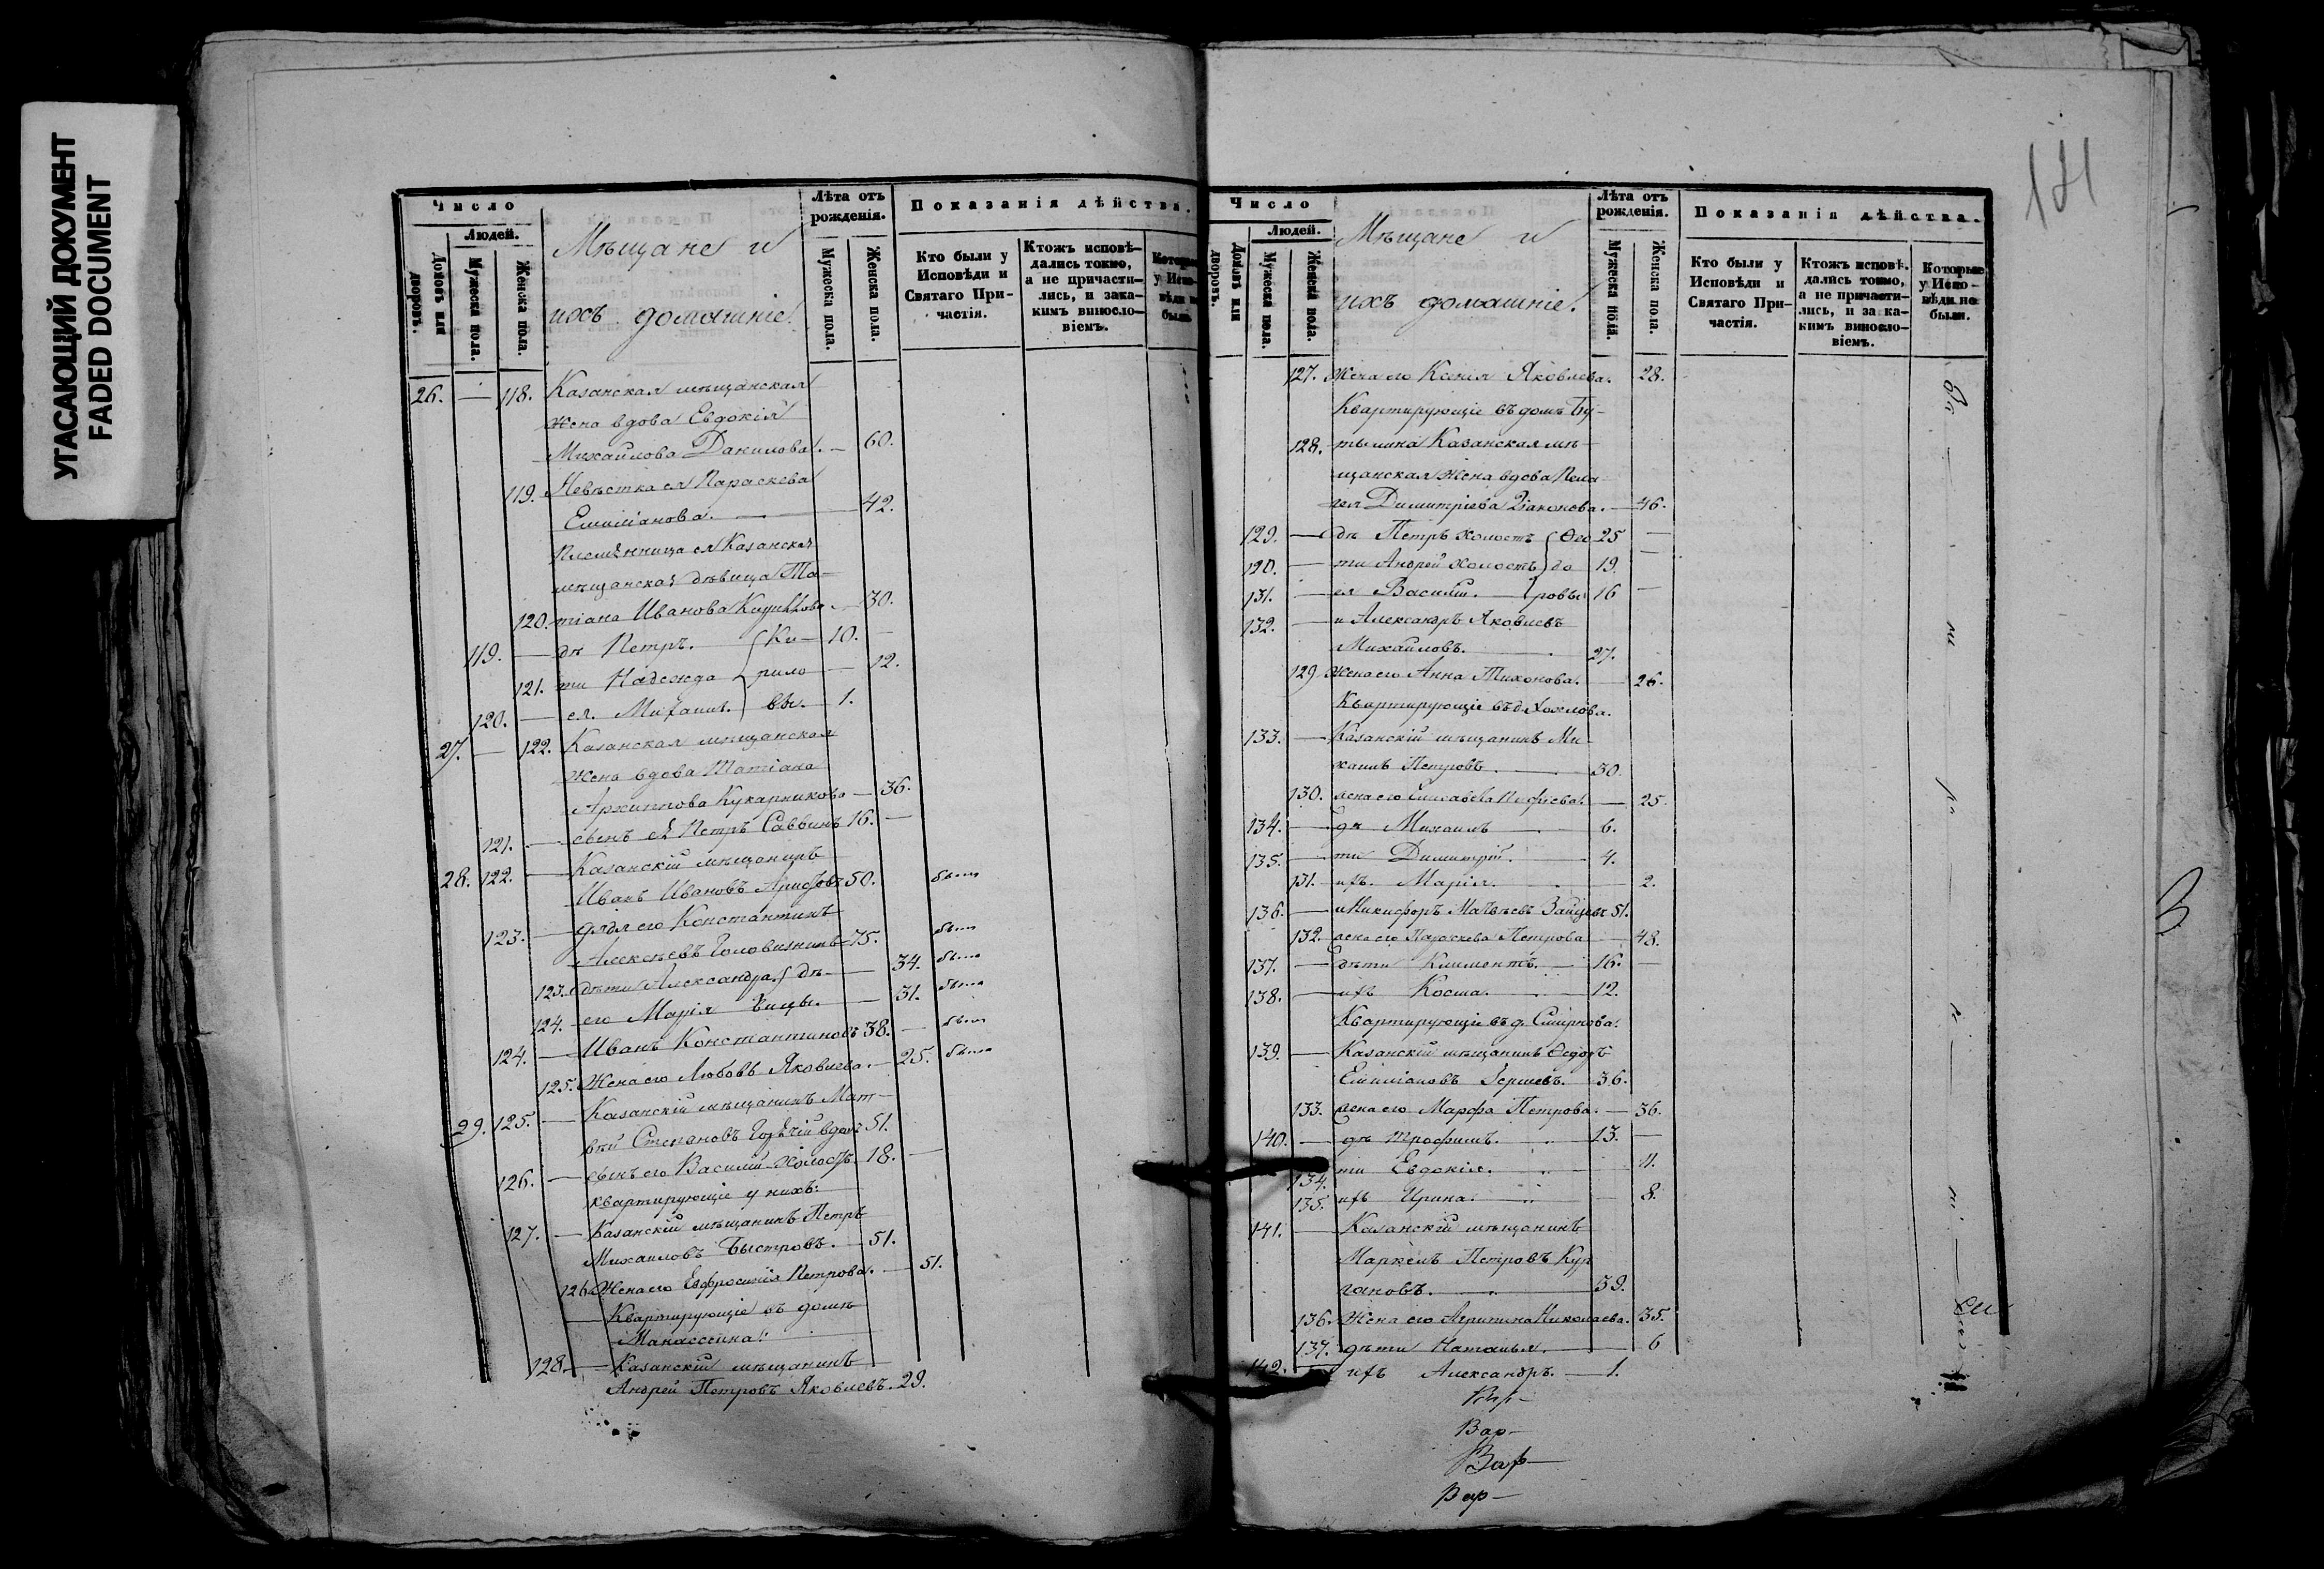 УГАСАЮЩИЙ ДОКУМЕНТ
FADED DOCUMENT
Число
Людей.
Домовъ или дворовъ.
Мужеска пола.
Женска пола.
Мѣщане и
ихъ домашніе.
Лѣта отъ рожденія.
Мужеска пола.
Женска пола.
Показанія дѣйства.
Кто были у Исповѣди и Святаго Причастія.
Ктожъ исповѣдались токмо, а не причастились, и закакимъ винословіемъ.
26. — 118. Казанская мѣщанская
жена вдова Евдокія
Михайлова Данилова. — 60.
119. Невѣстка ея Параскева
Емиліанова. — 42.
Племѣнница ея Казанская
мѣщанская дѣвица Та-
120. тіана Иванова — 30.
119. — дѣ Петръ. Ки- 10. —
121. ти Надежда рило — 12.
120. — ея. Михаилъ. вы. 1.
27. — 122. Казанская мѣщанская
жена вдова Татіана
Архиппова Кукарникова — 36.
121. — сынъ ея Петръ Саввинъ 16. —
28. 122. — Казанскій мѣщанинъ
Иванъ Ивановъ 50. былъ
123. — дядя его Константинъ
Алексѣевъ Головизнинъ 75. былъ
123. дѣти Александра. дѣ- — 34. была
124. его Марія вицы. — 31. была
124. — Иванъ Константиновъ 38. — былъ
125. Жена его Любовь Яковлева. — 25. была
29. 125. — Казанскій мѣщанинъ Мат-
вѣй Степановъ вдовъ 51.
126. — сынъ его Василій холостъ. 18. —
квартирующіе у нихъ:
127. — Казанскій мѣщанинъ Петръ
Михаиловъ Быстровъ. — 51.
126. Жена его Евфросинія Петрова. — 51.
Квартирующіе въ домѣ
Манассеина:
128. — Казанскій мѣщанинъ
Андрей Петровъ Яковлевъ. 29.
Число
Людей.
Домовъ или дворовъ.
Мужеска пола.
Женска пола.
Мѣщане и
ихъ домашніе.
Лѣта отъ рожденія.
Мужеска пола.
Женска пола.
Показанія дѣйства.
Кто были у Исповѣди и Святаго Причастія.
Ктожъ исповѣдались токмо, а не причастились, и за какимъ винословіемъ.
Которые у Исповѣди не были.
127. Жена его Ксенія Яковлева. 28.
Квартирующіе въ домѣ Бу-
128. тылина Казанская мѣ-
щанская жена вдова Пела-
гея Димитріева — 46.
129. — дѣ Петръ холостъ Ѳео 25 —
120. — ти Андрей холостъ до 19. —
131. — ея Василій. ровы 16 —
132. — и Александръ Яковлевъ
Михайловъ. 27.
129 Жена его Анна Тихонова. — 26.
Квартирующіе въ д.
133. — Казанскій мѣщанинъ Ми-
хаилъ Петровъ. — 30.
130. жена его Елисавета — 25.
134. — дѣ Михаилъ — 6.
135. — ти Димитрій. — 4.
131. ихъ. Марія. — 2.
136. — и Никифоръ Матвѣевъ Зайцевъ 51.
132. жена его Параскева Петрова — 48.
137. — дѣти Климентъ. — 16. —
138. — ихъ Косма. — 12.
Квартирующіе въ д. Смирнова.
139. — Казанскій мѣщанинъ Ѳедоръ
Емиліановъ 36.
133. жена его Марфа Петрова. — 36.
140. — дѣ Трофимъ. 13. —
134. ти Евдокія. 11.
135. ихъ Ирина. — 8.
141. — Казанскій мѣщанинъ
Маркелъ Петровъ Кур
гановъ. — 39.
136. Жена его Агрипина Николаева. 35.
137. дѣти Наталья. — 6
142. — ихъ Александръ. — 1.
Вар-
Вар-
Вар-
Вар-